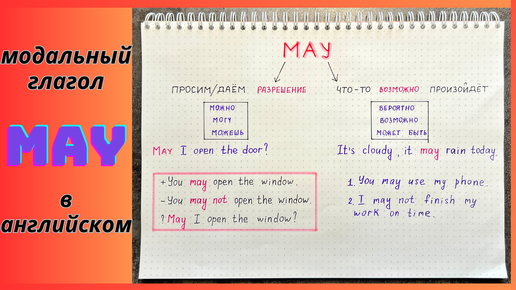 модальный
глагол
MAY
в
английском
MAY
ПРОСИМ/ДАЁМ РАЗРЕШЕНИЕ
ЧТО-ТО ВОЗМОЖНО ПРОИЗОЙДЁТ
МОЖНО
МОГУ
МОЖЕШЬ
ВЕРОЯТНО
ВОЗМОЖНО
МОЖЕТ БЫТЬ
MAY I open the door?
It's cloudy, it may rain today.
+ You may open the window.
- You may not open the window.
? May I open the window?
1. You may use my phone.
2. I may not finish my
work on time.